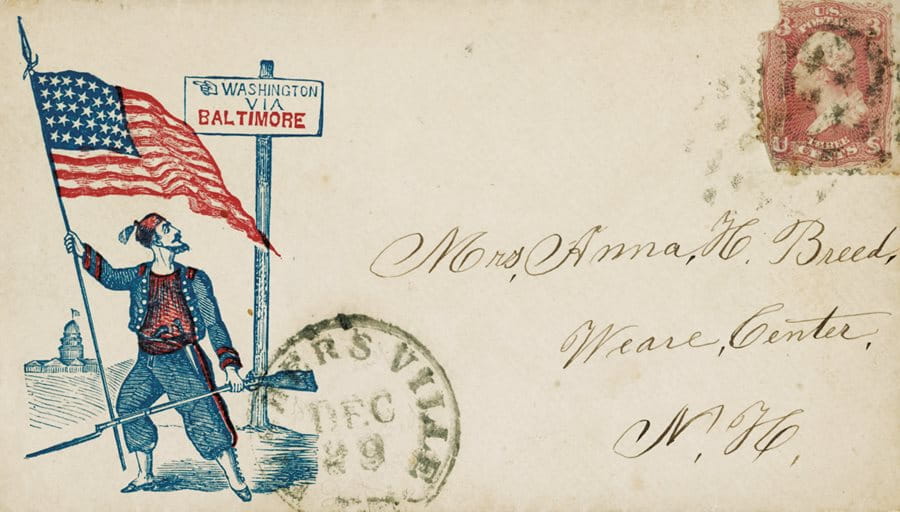 WASHINGTON
VIA
BALTIMORE
3 U.S. 3
POSTAGE
THREE
U CENTS S
Mrs, Anna, H. Breed,
Weare, Center,
N. H.
DEC
29